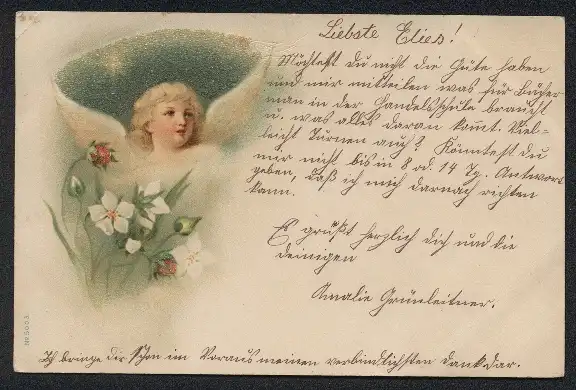 Liebste Elies!
Möchtest du nicht die Güte haben
und mir mitteilen was für Bücher
man in der Handelsschule braucht
u. was alles daran kommt. Viel-
leicht Turnen auch? Könntest du
mir nicht bis in 8 od. 14 Tg. Antwort
geben, daß ich mich darnach richten
kann.
Es grüßt herzlich dich und die
deinigen
Amalie Grünleitner.
Ich bringe dir schon im Voraus meinen verbindlichsten Dank dar.